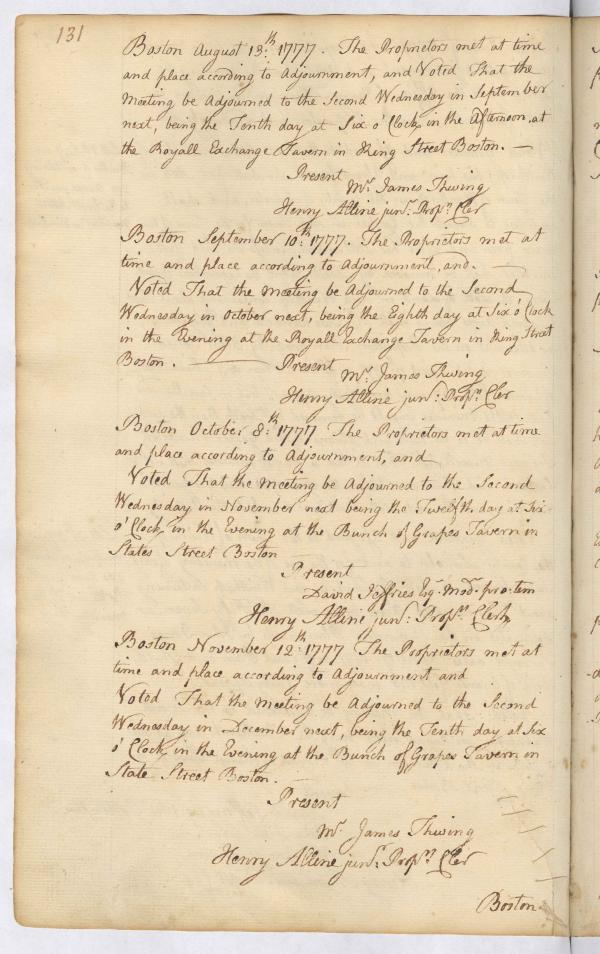 131
Boston August 13:th 1777. The Proprietors met at time
and place according to Adjournment, and Voted That the
Meeting be Adjourned to the Second Wednesday in September
next, being the Tenth day at Six o' Clock in the Afternoon at
the Royall Exchange Tavern in King Street Boston. —
Present
Mr. James Thwing
Henry Alline junr: Propr. Cler
Boston September 10:th 1777. The Proprietors met at
time and place according to Adjournment, and. —
Voted That the meeting be Adjourned to the Second
Wednesday in October next, being the Eighth day at Six o' Clock
in the Evening at the Royall Exchange Tavern in King Street
Boston. — Present
Mr. James Thwing
Henry Alline junr: Propr. Cler
Boston October 8:th 1777 The Proprietors met at time
and place according to Adjournment, and
Voted That the meeting be Adjourned to the Second
Wednesday in November next being the Twelfth day at Six
o' Clock in the Evening at the Bunch of Grapes Tavern in
States Street Boston
Present
David Jeffries Esq. Modr. pro:tem
Henry Alline junr: Propr. Clerk
Boston November 12:th 1777 The Proprietors met at
time and place according to Adjournment and
Voted That the meeting be Adjourned to the Second
Wednesday in December next, being the Tenth day at Six
o' Clock in the Evening at the Bunch of Grapes Tavern in
State Street Boston.
Present
Mr. James Thwing
Henry Alline junr: Propr. Cler
Boston